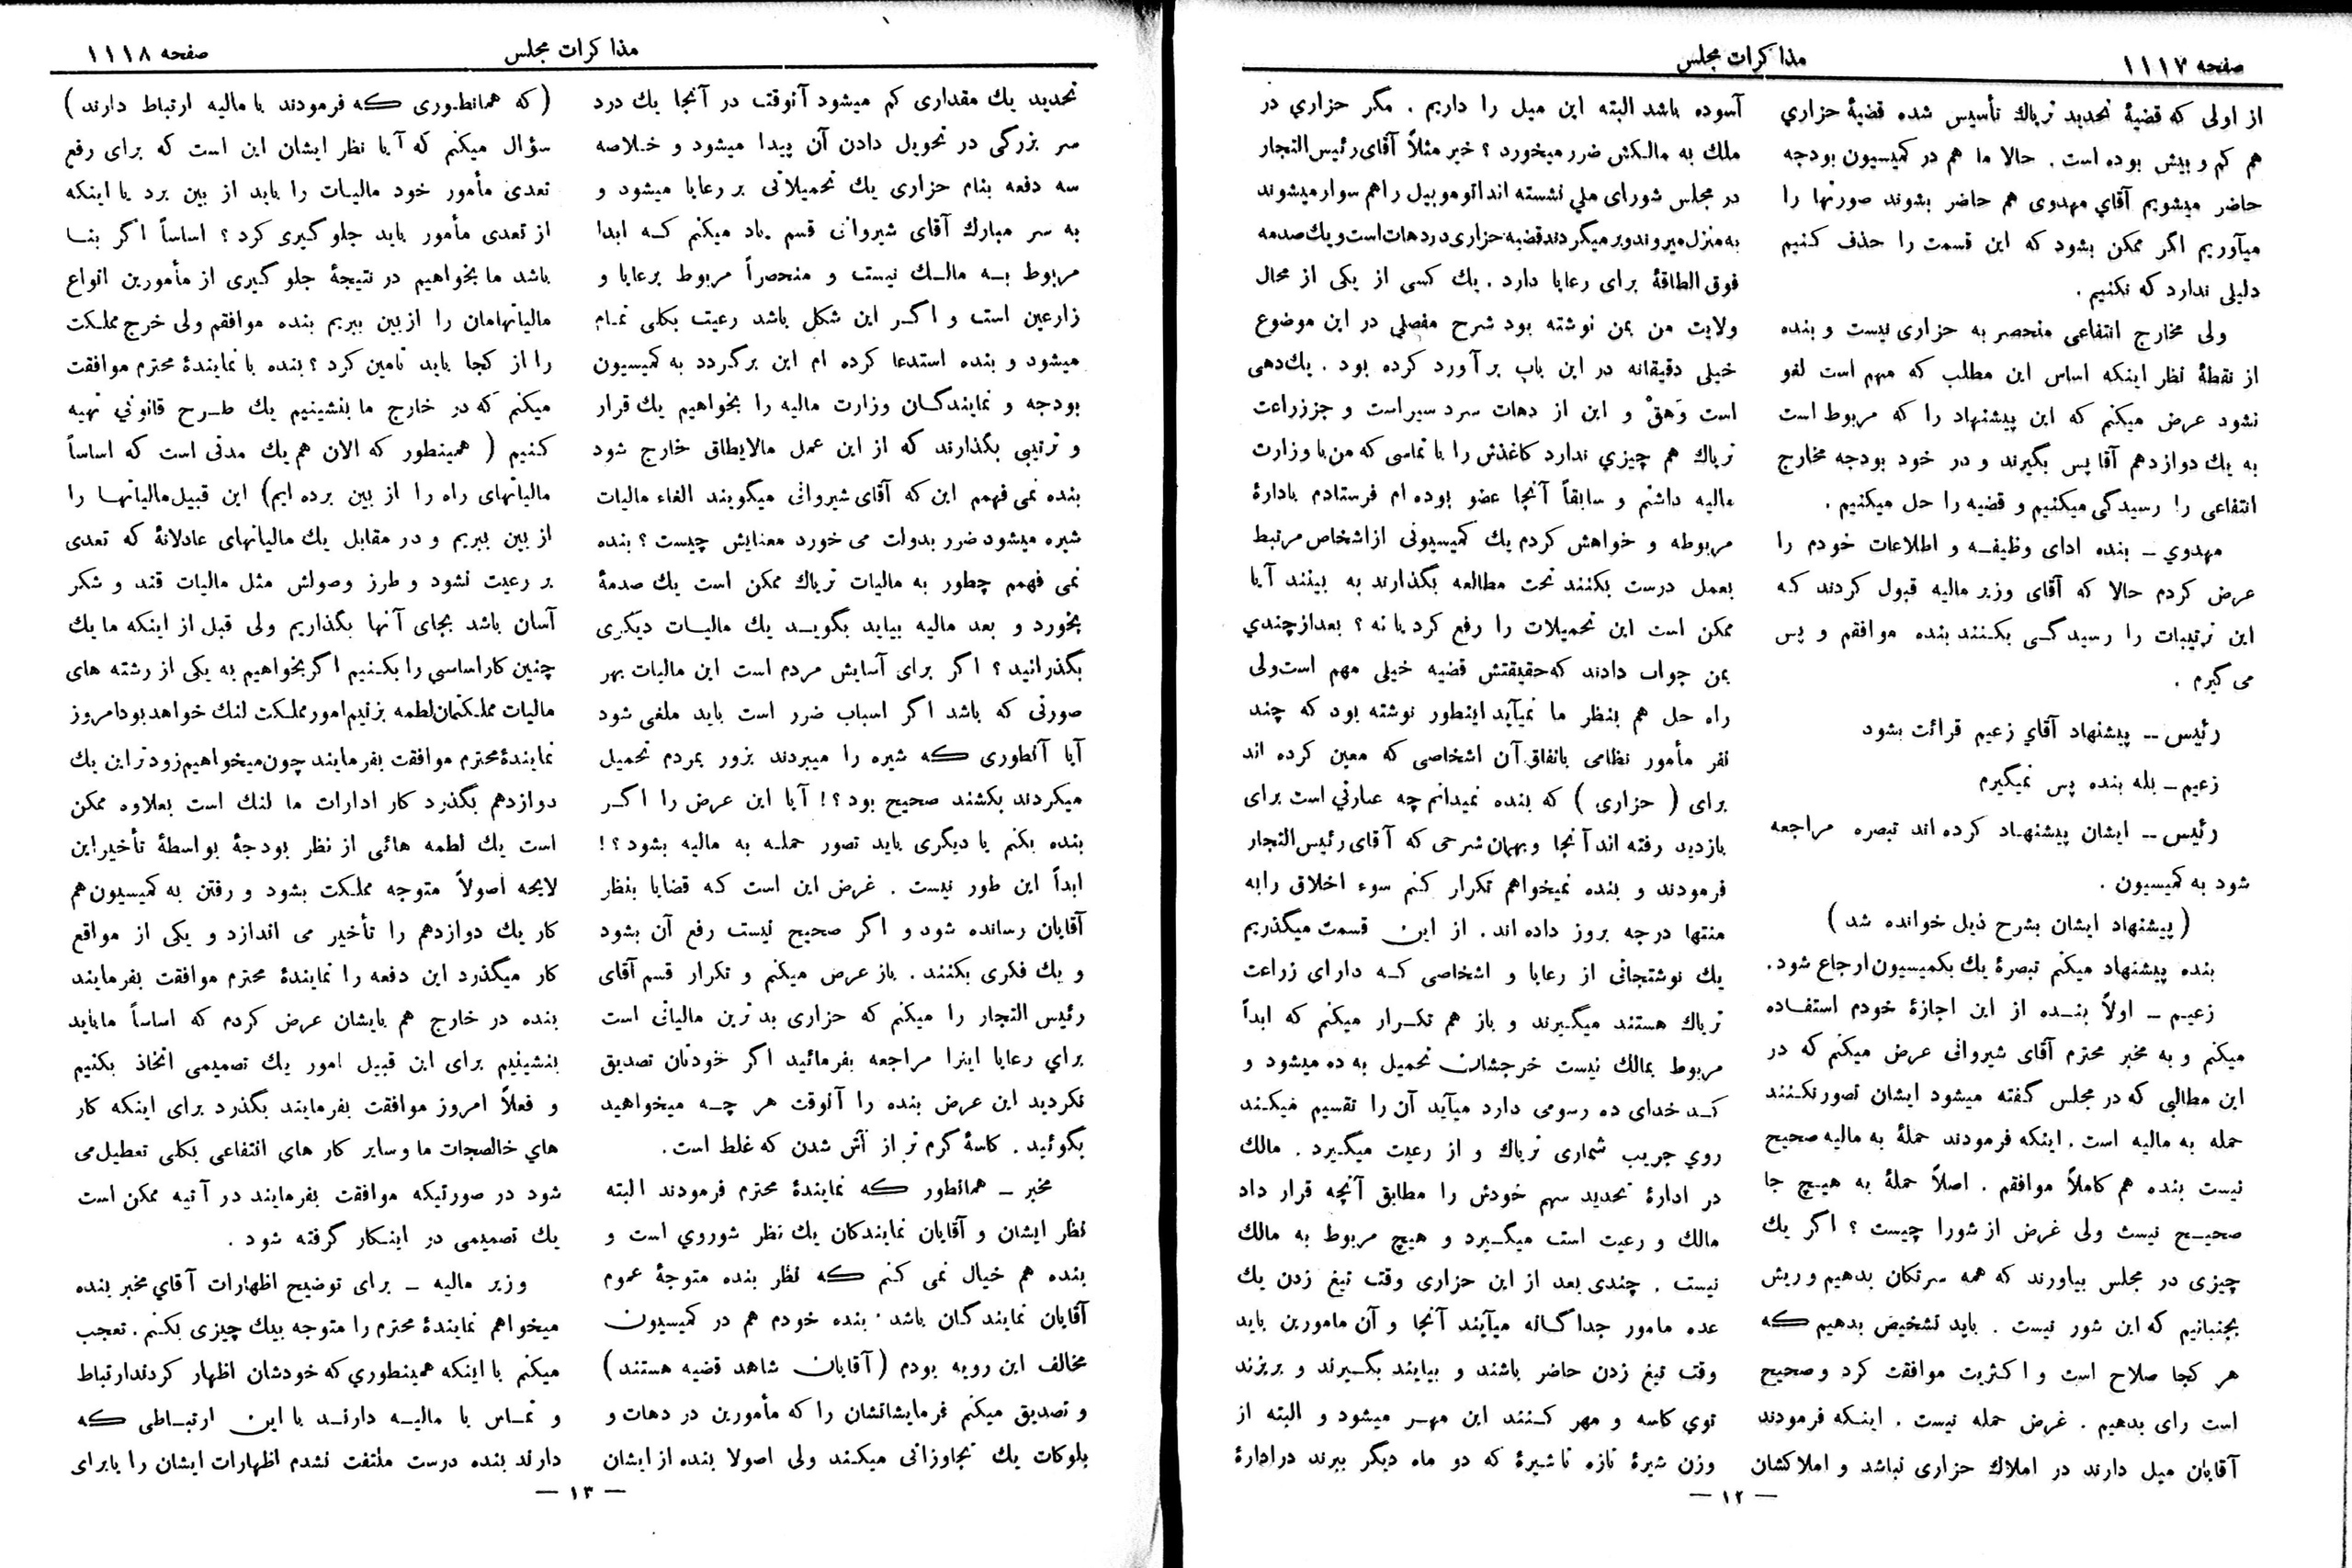 صفحه ۱۱۱۷
مذاکرات مجلس
از اولی که قضیهٔ تحدید تریاك تأسیس شده قضیهٔ حزاري
هم کم و بیش بوده است . حالا ما هم در کمیسیون بودجه
حاضر میشویم آقاي مهدوی هم حاضر بشوند صورتها را
میآوریم اگر ممکن بشود که این قسمت را حذف کنیم
دلیلی ندارد که نکنیم .
ولی مخارج انتفاعی منحصر به حزاری نیست و بنده
از نقطهٔ نظر اینکه اساس این مطلب که مهم است لغو
نشود عرض میکنم که این پیشنهاد را که مربوط است
به یك دوازدهم آقا پس بگیرند و در خود بودجه مخارج
انتفاعی را رسیدگی میکنیم و قضیه را حل میکنیم .
مهدوي ـ بنده ادای وظیفه و اطلاعات خودم را
عرض کردم حالا که آقای وزیر مالیه قبول کردند که
این ترتیبات را رسیدگی بکنند بنده موافقم و پس
می گیرم .
رئیس ــ پیشنهاد آقاي زعیم قرائت بشود
زعیم ـ بله بنده پس نمیگیرم
رئیس ــ ایشان پیشنهاد کرده اند تبصره مراجعه
شود به کمیسیون .
( پیشنهاد ایشان بشرح ذیل خوانده شد )
بنده پیشنهاد میکنم تبصرهٔ یك بکمیسیون ارجاع شود.
زعیم ـ اولاً بنده از این اجازهٔ خودم استفاده
میکنم و به مخبر محترم آقای شیروانی عرض میکنم که در
این مطالبی که در مجلس گفته میشود ایشان تصور نکنند
حمله به مالیه است . اینکه فرمودند حملهٔ به مالیه صحیح
نیست بنده هم کاملاً موافقم . اصلاً حملهٔ به هیچ جا
صحیح نیست ولی غرض از شورا چیست ؟ اگر یك
چیزی در مجلس بیاورند که همه سرتکان بدهیم و ریش
بجنبانیم که این شور نیست . باید تشخیص بدهیم که
هر کجا صلاح است و اکثریت موافقت کرد و صحیح
است رای بدهیم . غرض حمله نیست . اینکه فرمودند
آقایان میل دارند در املاك حزاری نباشد و املاکشان
آسوده باشد البته این میل را داریم . مگر حزاري در
ملك به مالکش ضرر میخورد ؟ خیر مثلاً آقای رئیس التجار
در مجلس شورای ملي نشسته اند اتوموبیل راهم سوار میشوند
به منزل میروند و بر میگردند قضیه حزاری در دهات است و یك صدمه
فوق الطاقهٔ برای رعایا دارد . یك کسی از یکی از محال
ولایت من بمن نوشته بود شرح مفصلی در این موضوع
خیلی دقیقانه در این باب بر آورد کرده بود . یك دهی
است وَهقْ و این از دهات سرد سیر است و جز زراعت
تریاك هم چیزي ندارد کاغذش را با تماسی که من با وزارت
مالیه داشتم و سابقاً آنجا عضو بوده ام فرستادم بادارهٔ
مربوطه و خواهش کردم یك کمیسیونی از اشخاص مرتبط
بعمل درست بکنند تحت مطالعه بگذارند به بینند آیا
ممکن است این تحمیلات را رفع کرد یا نه ؟ بعد از چندي
بمن جواب دادند که حقیقتش قضیه خیلی مهم است ولی
راه حل هم بنظر ما نمیآید اینطور نوشته بود که چند
نفر مأمور نظامی باتفاق آن اشخاصی که معین کرده اند
برای ( حزاری ) که بنده نمیدانم چه عبارتي است برای
بازدید رفته اند آنجا و بهمان شرحی که آقای رئیس التجار
فرمودند و بنده نمیخواهم تکرار کنم سوء اخلاق را به
منتها درجه بروز داده اند . از این قسمت میگذریم
یك نوشتجاتی از رعایا و اشخاصی که دارای زراعت
تریاك هستند میگیرند و باز هم تکرار میکنم که ابداً
مربوط بمالك نیست خرجشان تحمیل به ده میشود و
کد خدای ده رسومی دارد میآید آن را تقسیم میکند
روي جریب شماری تریاك و از رعیت میگیرد . مالك
در ادارهٔ تحدید سهم خودش را مطابق آنچه قرار داد
مالك و رعیت است میگیرد و هیچ مربوط به مالك
نیست . چندی بعد از این حزاری وقت تیغ زدن یك
عده مامور جداگانه میآیند آنجا و آن مامورین باید
وقت تیغ زدن حاضر باشند و بیایند بگیرند و بریزند
توي کاسه و مهر کنند این مهر میشود و البته از
وزن شیرهٔ تازه تا شیرهٔ که دو ماه دیگر ببرند در ادارهٔ
— ۱۲ —
صفحه ۱۱۱۸
مذاکرات مجلس
تحدید یك مقداری کم میشود آنوقت در آنجا یك درد
سر بزرگی در تحویل دادن آن پیدا میشود و خلاصه
سه دفعه بنام حزاری یك تحمیلاتی بر رعایا میشود و
به سر مبارك آقای شیروانی قسم یاد میکنم که ابدا
مربوط به مالك نیست و منحصراً مربوط برعایا و
زارعین است و اگر این شکل باشد رعیت بکلی تمام
میشود و بنده استدعا کرده ام این برگردد به کمیسیون
بودجه و نمایندگان وزارت مالیه را بخواهیم یك قرار
و ترتیبی بگذارند که از این عمل مالایطاق خارج شود
بنده نمی فهمم این که آقای شیروانی میگویند الغاء مالیات
شیره میشود ضرر بدولت می خورد معنایش چیست ؟ بنده
نمی فهمم چطور به مالیات تریاك ممکن است یك صدمهٔ
بخورد و بعد مالیه بیاید بگوید یك مالیات دیگری
بگذرانید ؟ اگر برای آسایش مردم است این مالیات بهر
صورتی که باشد اگر اسباب ضرر است باید ملغی شود
آیا آنطوری که شیره را میبردند بزور بمردم تحمیل
میکردند بکشند صحیح بود ؟! آیا این عرض را اگر
بنده بکنم یا دیگری باید تصور حمله به مالیه بشود ؟!
ابداً این طور نیست . غرض این است که قضایا بنظر
آقایان رسانده شود و اگر صحیح نیست رفع آن بشود
و یك فکری بکنند . باز عرض میکنم و تکرار قسم آقای
رئیس التجار را میکنم که حزاری بد ترین مالیاتی است
براي رعایا اینرا مراجعه بفرمائید اگر خودتان تصدیق
نکردید این عرض بنده را آنوقت هر چه میخواهید
بگوئید . کاسهٔ گرم تر از آش شدن که غلط است .
مخبر ـ همانطور که نمایندهٔ محترم فرمودند البته
نظر ایشان و آقایان نمایندگان یك نظر شوروي است و
بنده هم خیال نمی کنم که نظر بنده متوجهٔ عموم
آقایان نمایندگان باشد . بنده خودم هم در کمیسیون
مخالف این رویه بودم ( آقایان شاهد قضیه هستند )
و تصدیق میکنم فرمایشاتشان را که مأمورین در دهات و
بلوکات یك تجاوزاتی میکنند ولی اصولا بنده از ایشان
( که همانطوری که فرمودند با مالیه ارتباط دارند )
سؤال میکنم که آیا نظر ایشان این است که برای رفع
تعدی مأمور خود مالیات را باید از بین برد یا اینکه
از تعدی مأمور باید جلوگیری کرد ؟ اساساً اگر بنا
باشد ما بخواهیم در نتیجهٔ جلوگیری از مأمورین انواع
مالیاتهامان را از بین ببریم بنده موافقم ولی خرج مملکت
را از کجا باید تامین کرد ؟ بنده با نمایندهٔ محترم موافقت
میکنم که در خارج ما بنشینیم یك طرح قانوني تهیه
کنیم ( همینطور که الان هم یك مدتی است که اساساً
مالیاتهای راه را از بین برده ایم) این قبیل مالیاتها را
از بین ببریم و در مقابل یك مالیاتهای عادلانهٔ که تعدی
بر رعیت نشود و طرز وصولش مثل مالیات قند و شکر
آسان باشد بجای آنها بگذاریم ولی قبل از اینکه ما یك
چنین کار اساسي را بکنیم اگر بخواهیم به یکی از رشته های
مالیات مملکتمان لطمه بزنیم امور مملکت لنك خواهد بود امروز
نمایندهٔ محترم موافقت بفرمایند چون میخواهیم زود تر این یك
دوازدهم بگذرد کار ادارات ما لنك است بعلاوه ممکن
است یك لطمه هائی از نظر بودجهٔ بواسطهٔ تأخیر این
لایحه اصولاً متوجه مملکت بشود و رفتن به کمیسیون هم
کار یك دوازدهم را تأخیر می اندازد و یکی از مواقع
کار میگذرد این دفعه را نمایندهٔ محترم موافقت بفرمایند
بنده در خارج هم بایشان عرض کردم که اساساً ما باید
بنشینیم برای این قبیل امور یك تصمیمی اتخاذ بکنیم
و فعلاً امروز موافقت بفرمایند بگذرد برای اینکه کار
هاي خالصجات ما و سایر کار های انتفاعی بکلی تعطیل می
شود در صورتیکه موافقت بفرمایند در آتیه ممکن است
یك تصمیمی در اینکار گرفته شود .
وزیر مالیه ـ برای توضیح اظهارات آقاي مخبر بنده
میخواهم نمایندهٔ محترم را متوجه بیك چیزی بکنم . تعجب
میکنم با اینکه همینطوري که خودشان اظهار کردند ارتباط
و تماس با مالیه دارند با این ارتباطی که
دارند بنده درست ملتفت نشدم اظهارات ایشان را یا برای
— ۱۳ —